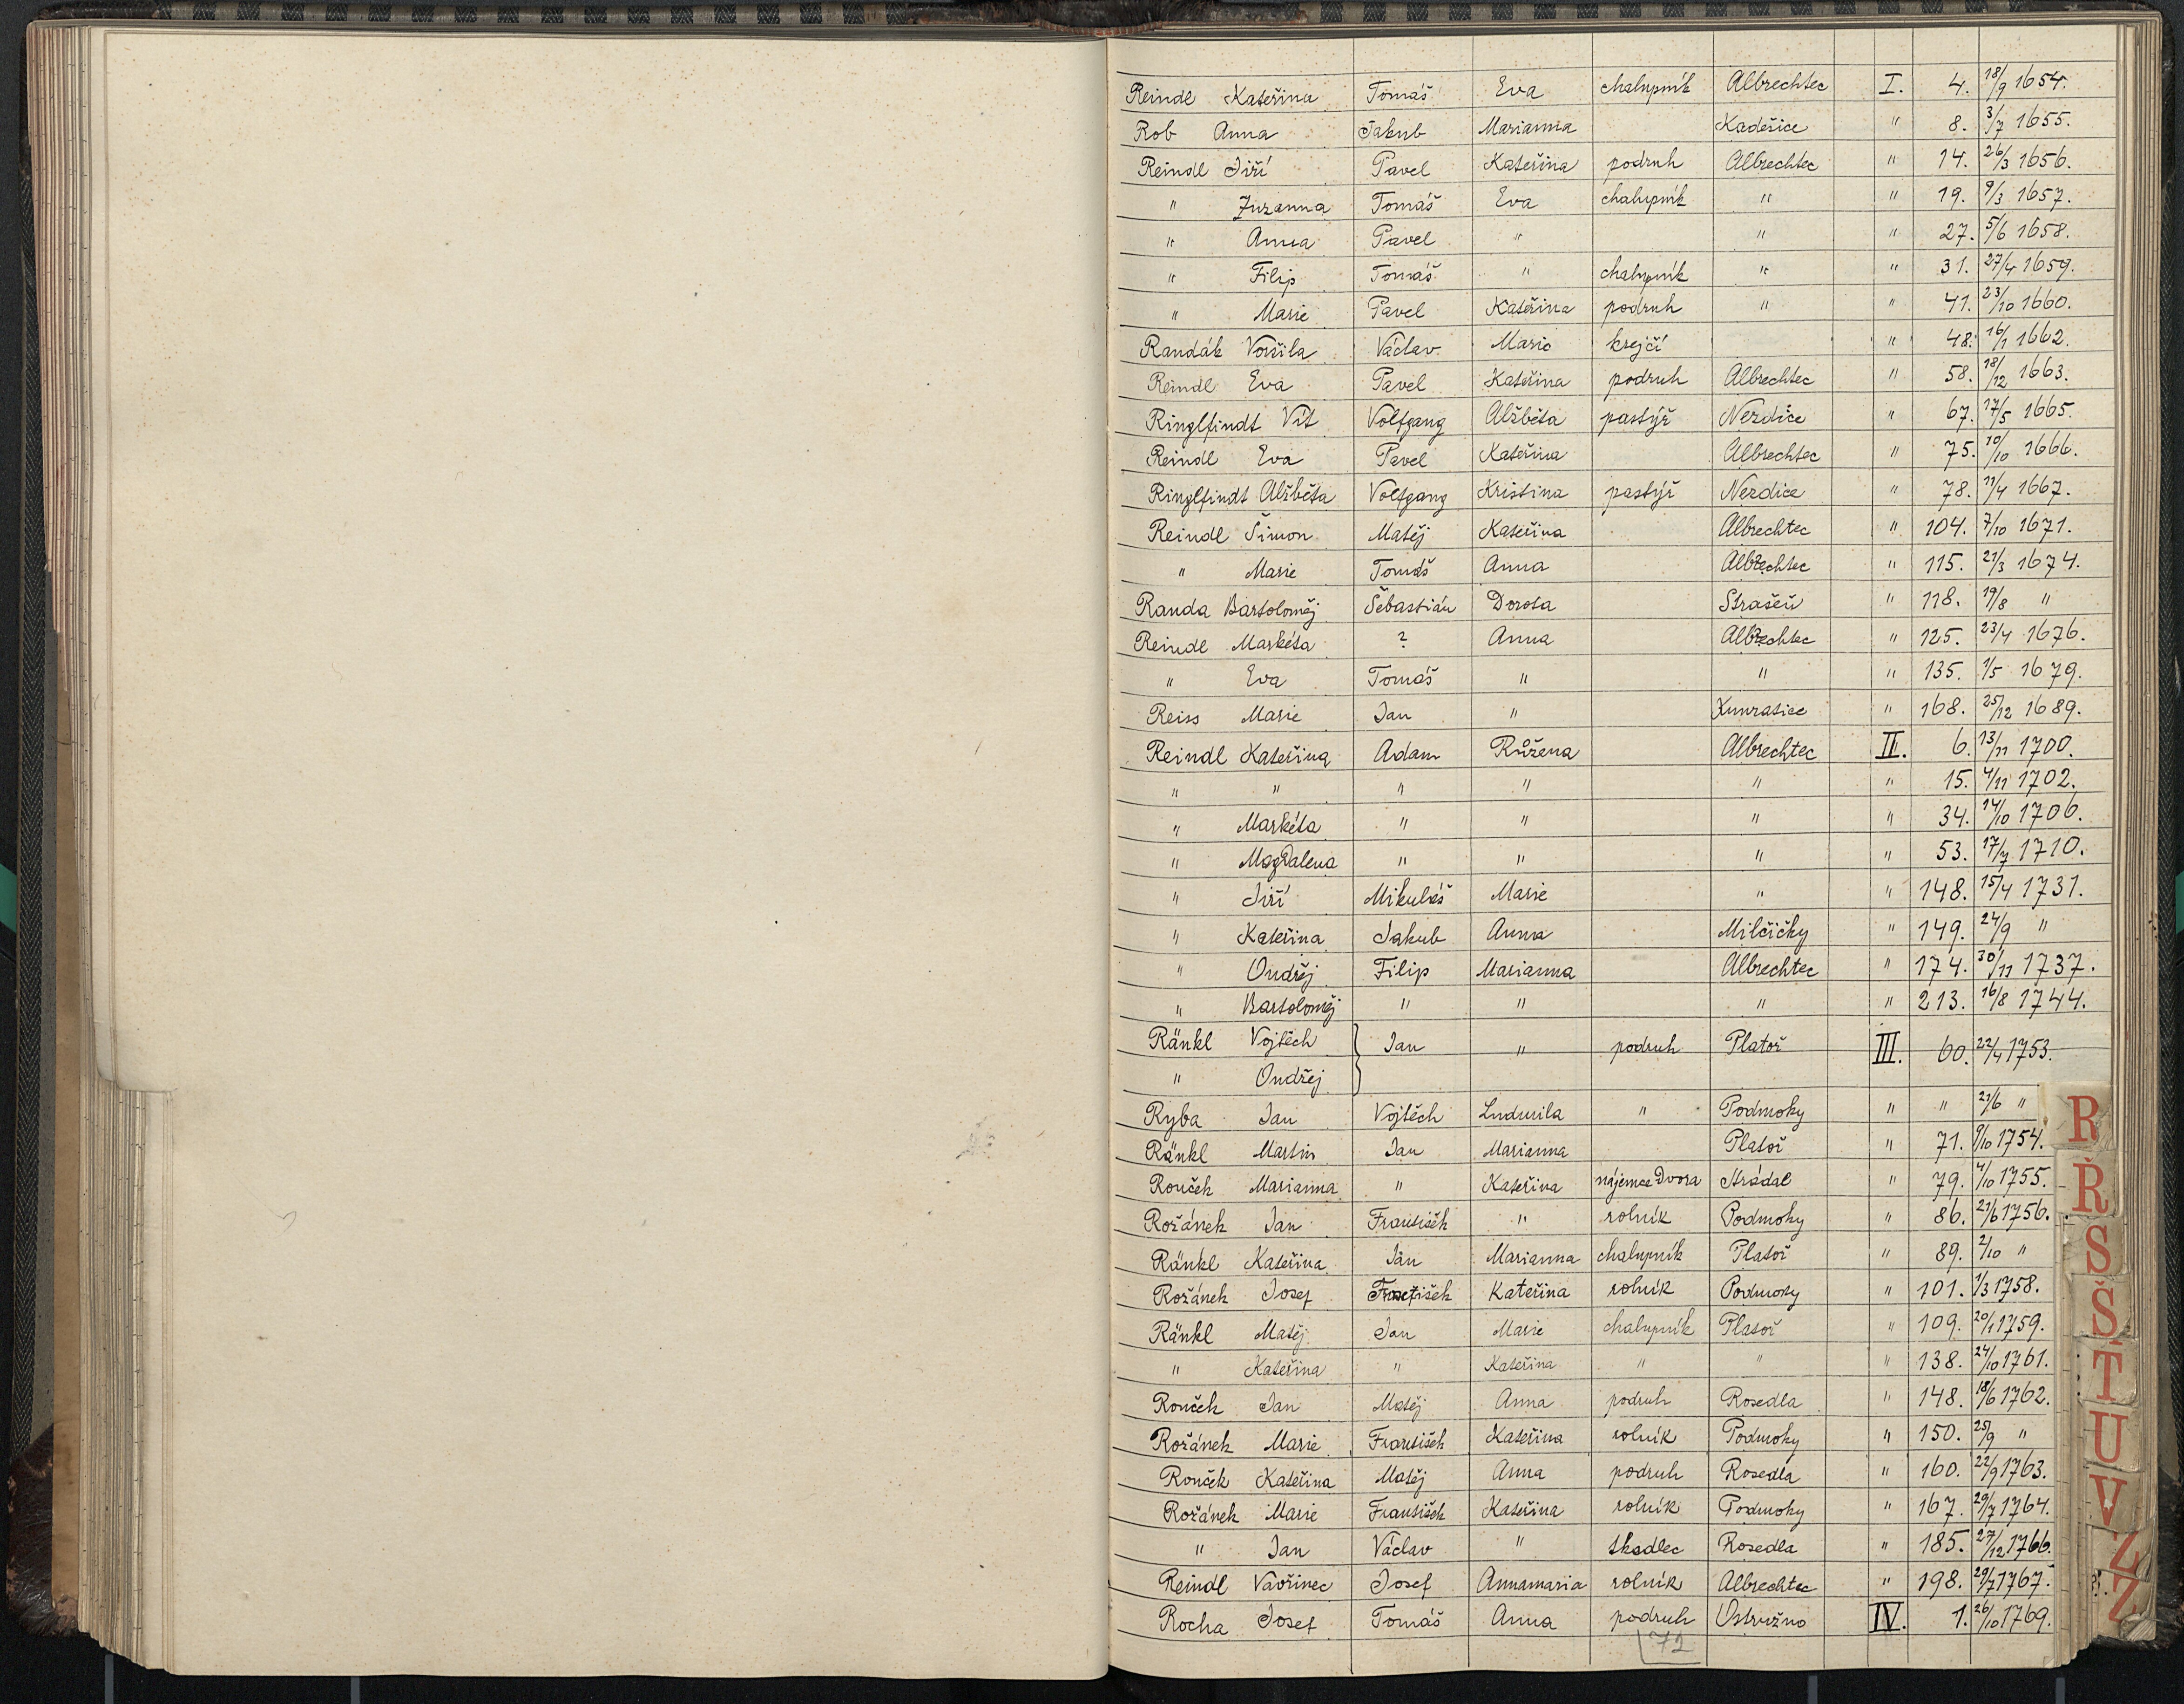 Reindl Kateřina Tomáš Eva chalupník Albrechtec I. 4. 18/9 1654.
Rob Anna Jakub Marianna Kadešice " 8. 3/7 1655.
Reindl Jiří Pavel Kateřina podruh Albrechtec " 14. 26/3 1656.
" Zuzanna Tomáš Eva chalupník " " 19. 9/3 1657.
" Anna Pavel " " " 27. 5/6 1658.
" Filip Tomáš " chalupník " " 31. 27/4 1659.
" Marie Pavel Kateřina podruh " " 41. 23/10 1660.
Randák Voršila Václav Marie krejčí " 48. 16/1 1662.
Reindl Eva Pavel Kateřina podruh Albrechtec " 58. 18/12 1663.
Ringlfindt Vít Volfgang Alžběta pastýř Nezdice " 67. 17/5 1665.
Reindl Eva Pavel Kateřina Albrechtec " 75. 10/10 1666.
Ringlfindt Alžběta Volfgang Kristina pastýř Nezdice " 78. 11/4 1667.
Reindl Šimon Matěj Kateřina Albrechtec " 104. 7/10 1671.
" Marie Tomáš Anna Albrechtec " 115. 21/3 1674.
Randa Bartoloměj Šebastián Dorota Strašeň " 118. 19/8 "
Reindl Markéta ? Anna Albrechtec " 125. 23/4 1676.
" Eva Tomáš " " " 135. 1/5 1679.
Reiss Marie Jan " Kunratice " 168. 25/12 1689.
Reindl Kateřina Adam Růžena Albrechtec II. 6. 13/11 1700.
" " " " " " 15. 4/11 1702.
" Markéta " " " " 34. 14/10 1706.
" Magdalena " " " " 53. 17/7 1710.
" Jiří Mikuláš Marie " " 148. 15/4 1731.
" Kateřina Jakub Anna Milčičky " 149. 24/9 "
" Ondřej Filip Marianna Albrechtec " 174. 30/11 1737.
" Bartoloměj " " " " 213. 16/8 1744.
Ränkl Vojtěch Jan " podruh Platoř III. 60. 22/4 1753.
" Ondřej
Ryba Jan Vojtěch Ludmila " Podmoky " " 21/6 "
Ränkl Martin Jan Marianna Platoř " 71. 9/10 1754.
Rouček Marianna " Kateřina nájemce Dvora Strádal " 79. 4/10 1755.
Rožánek Jan František " rolník Podmoky " 86. 21/6 1756.
Ränkl Kateřina Jan Marianna chalupník Platoř " 89. 2/10 "
Rožánek Josef František Kateřina rolník Podmoky " 101. 1/3 1758.
Ränkl Matěj Jan Marie chalupník Platoř " 109. 20/1 1759.
" Kateřina " Kateřina " " " 138. 24/10 1761.
Rouček Jan Matěj Anna podruh Rosedla " 148. 18/6 1762.
Rožánek Marie František Kateřina rolník Podmoky " 150. 25/9 "
Rouček Kateřina Matěj Anna podruh Rosedla " 160. 22/9 1763.
Rožánek Marie František Kateřina rolník Podmoky " 167. 29/7 1764.
" Jan Václav " tkadlec Rosedla " 185. 27/12 1766.
Reindl Vavřinec Josef Annamaria rolník Albrechtec " 198. 29/7 1767.
Rocha Josef Tomáš Anna podruh Ostružno IV. 1. 26/10 1769.
72
R
Ř
S
Š
T
U
V
Z
Ž